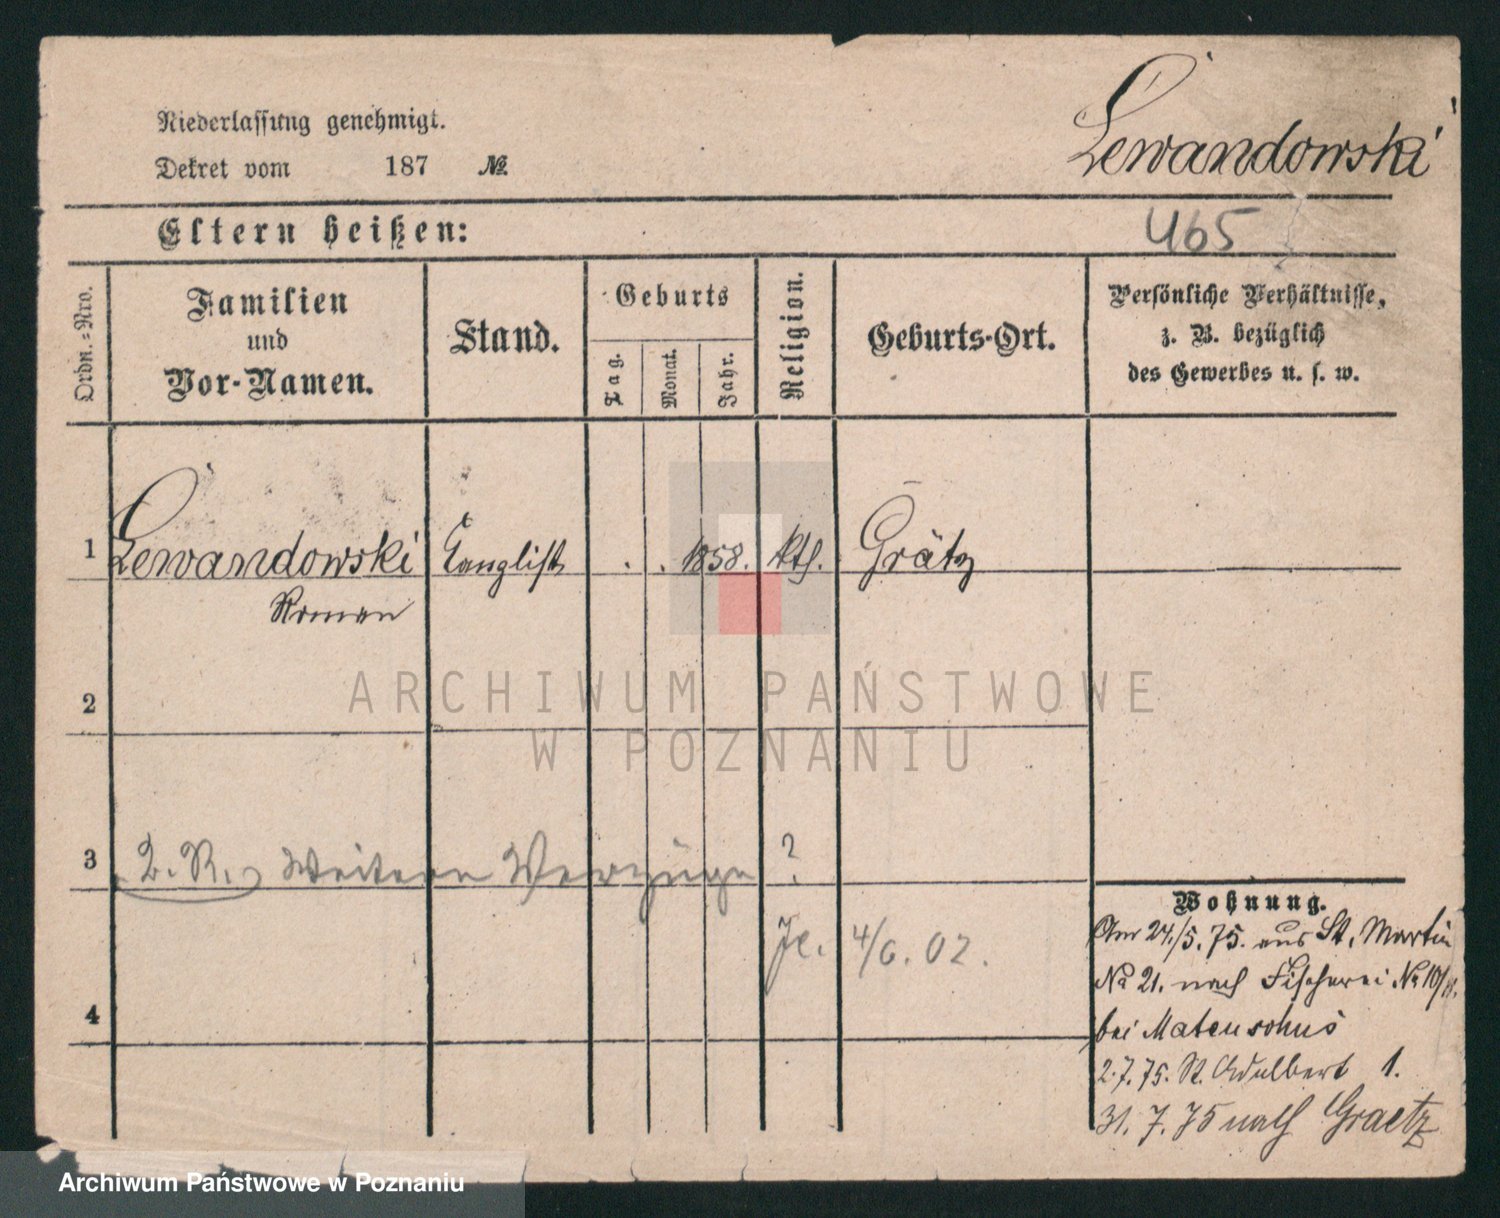 Niederlassung genehmigt.
Dekret vom 187 №
Lewandowski
Eltern heißen:
465
Ordn.=Nro.
Familien
und
Vor-Namen.
Stand.
Geburts
Tag.
Monat.
Jahr.
Religion.
Geburts-Ort.
Persönliche Verhältnisse,
z. B. bezüglich
des Gewerbes u. s. w.
1 Lewandowski Canzlist . . 1858. kth. Grätz
Roman
2
ARCHIWUM PAŃSTWOWE
W POZNANIU
3 Z. R. Weitere Verzüge ?
Wohnung.
Am 24./5.75. aus St. Martin
4/6. 02.
№ 21. nach Fischerei № 10/11.
4
bei
2.7.75. St. Adalbert 1.
31. 7. 75 nach Graetz
Archiwum Państwowe w Poznaniu